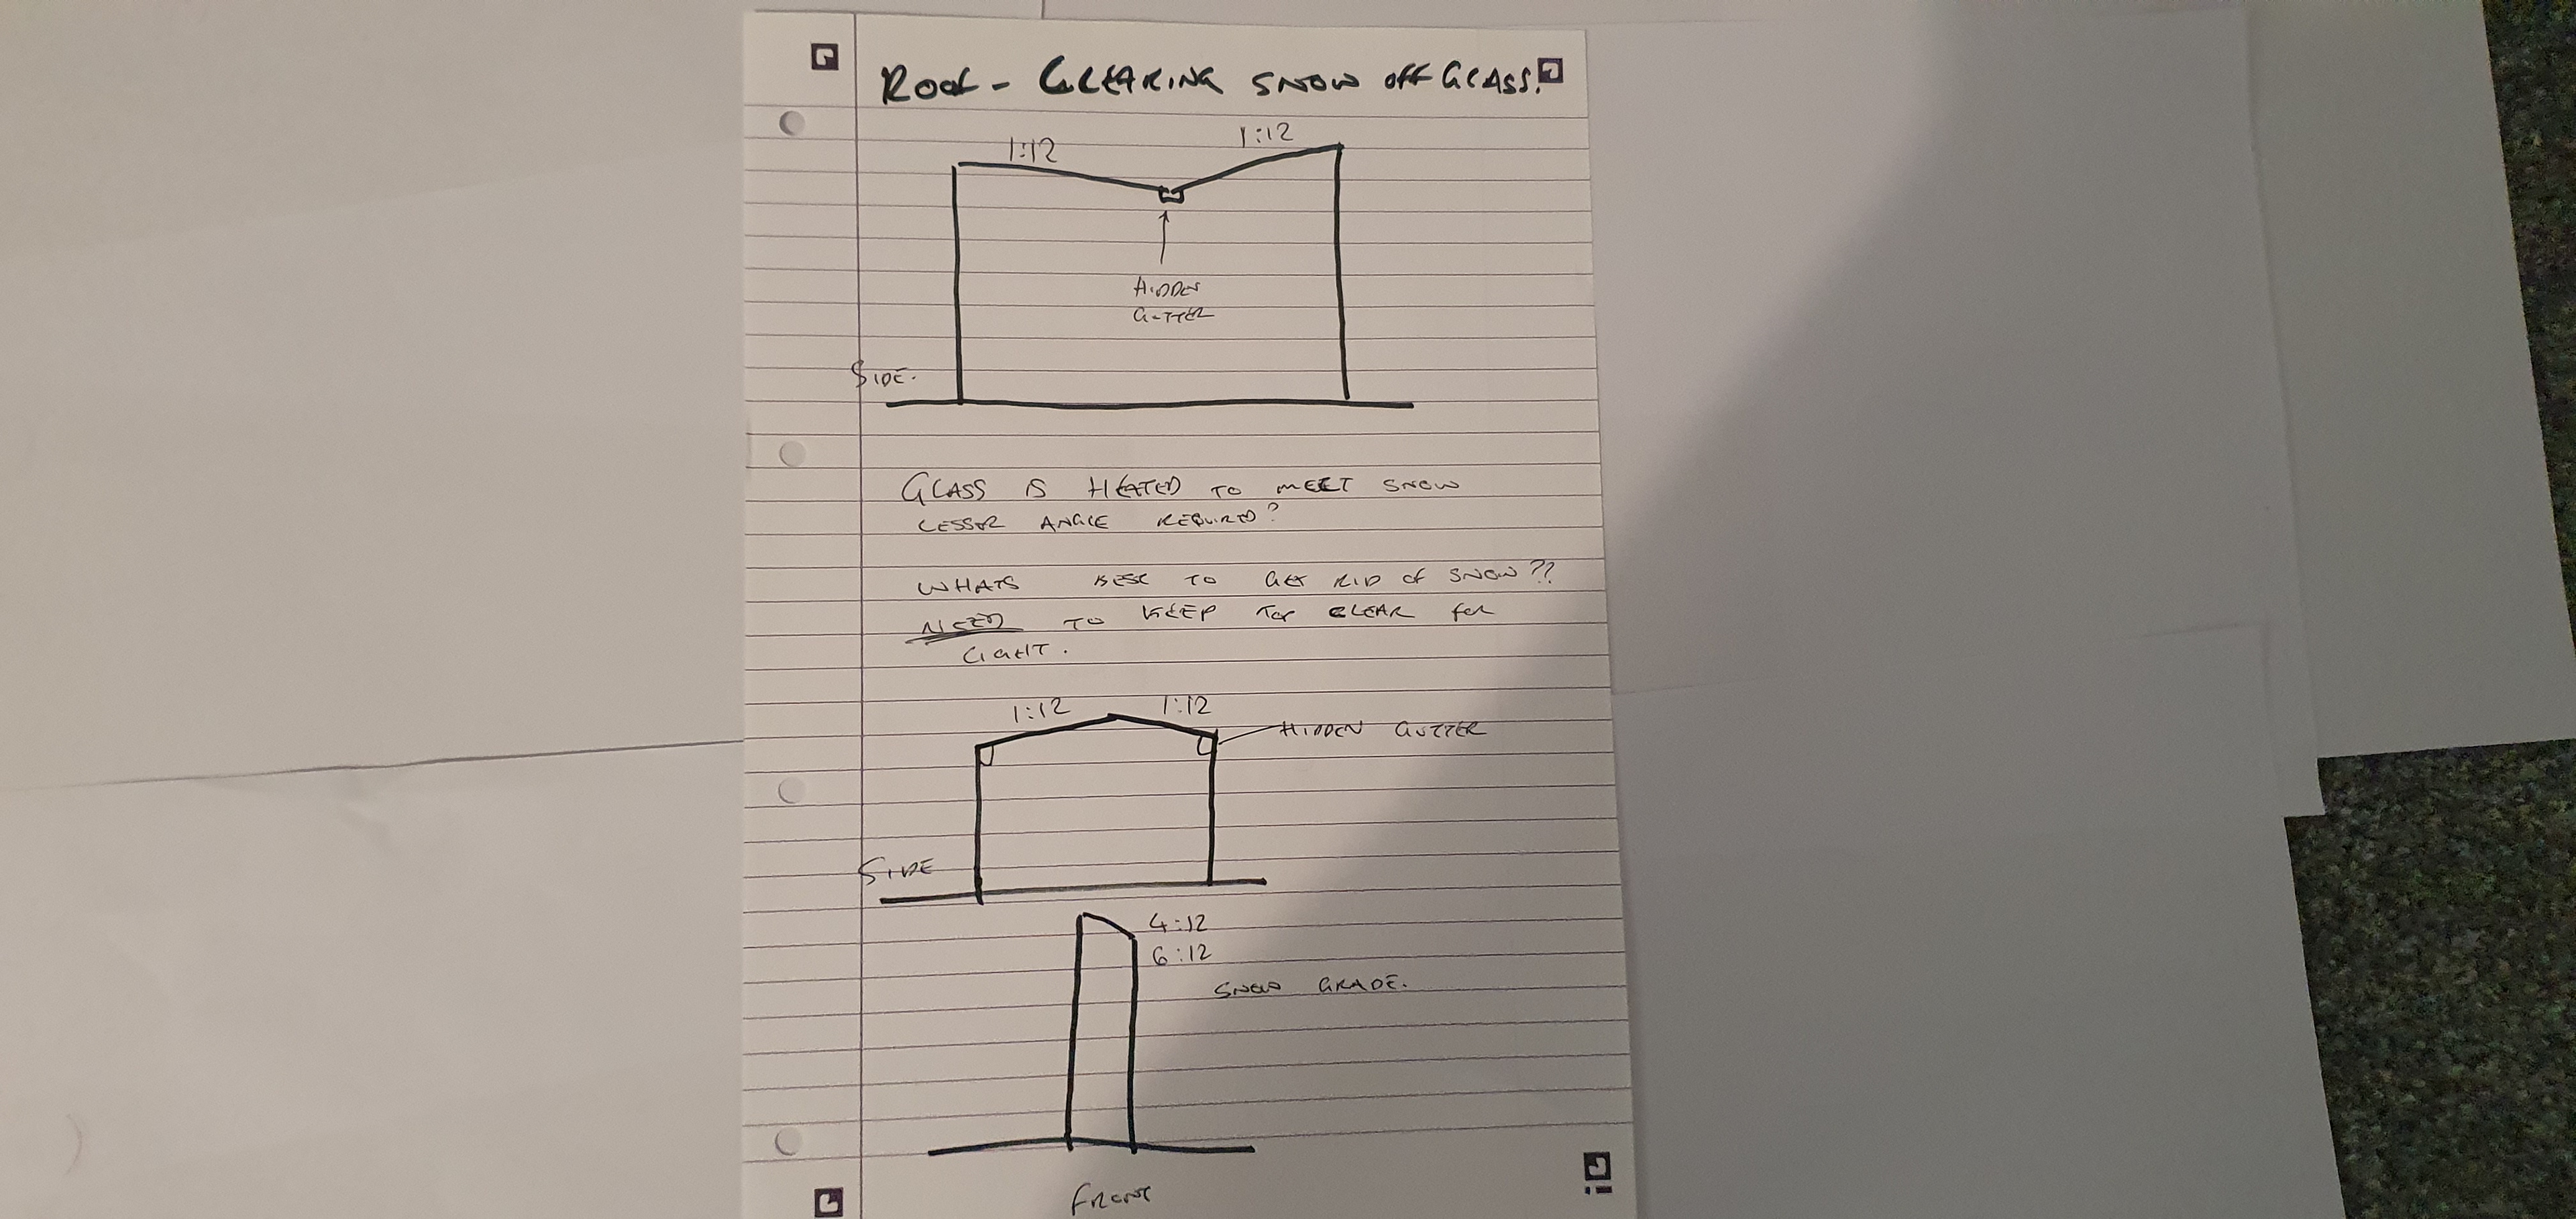 ROOF - CLEARING SNOW OFF GLASS.
1:12 1:12
HIDDEN
GUTTER
SIDE.
GLASS IS HEATED TO MEET SNOW
LESSER ANGLE REQUIRED?
WHATS BEST TO GET RID OF SNOW??
NEED TO KEEP TOP CLEAR FOR
LIGHT.
1:12 1:12
HIDDEN GUTTER
SIDE
4:12
6:12
SNOW GRADE.
FRONT